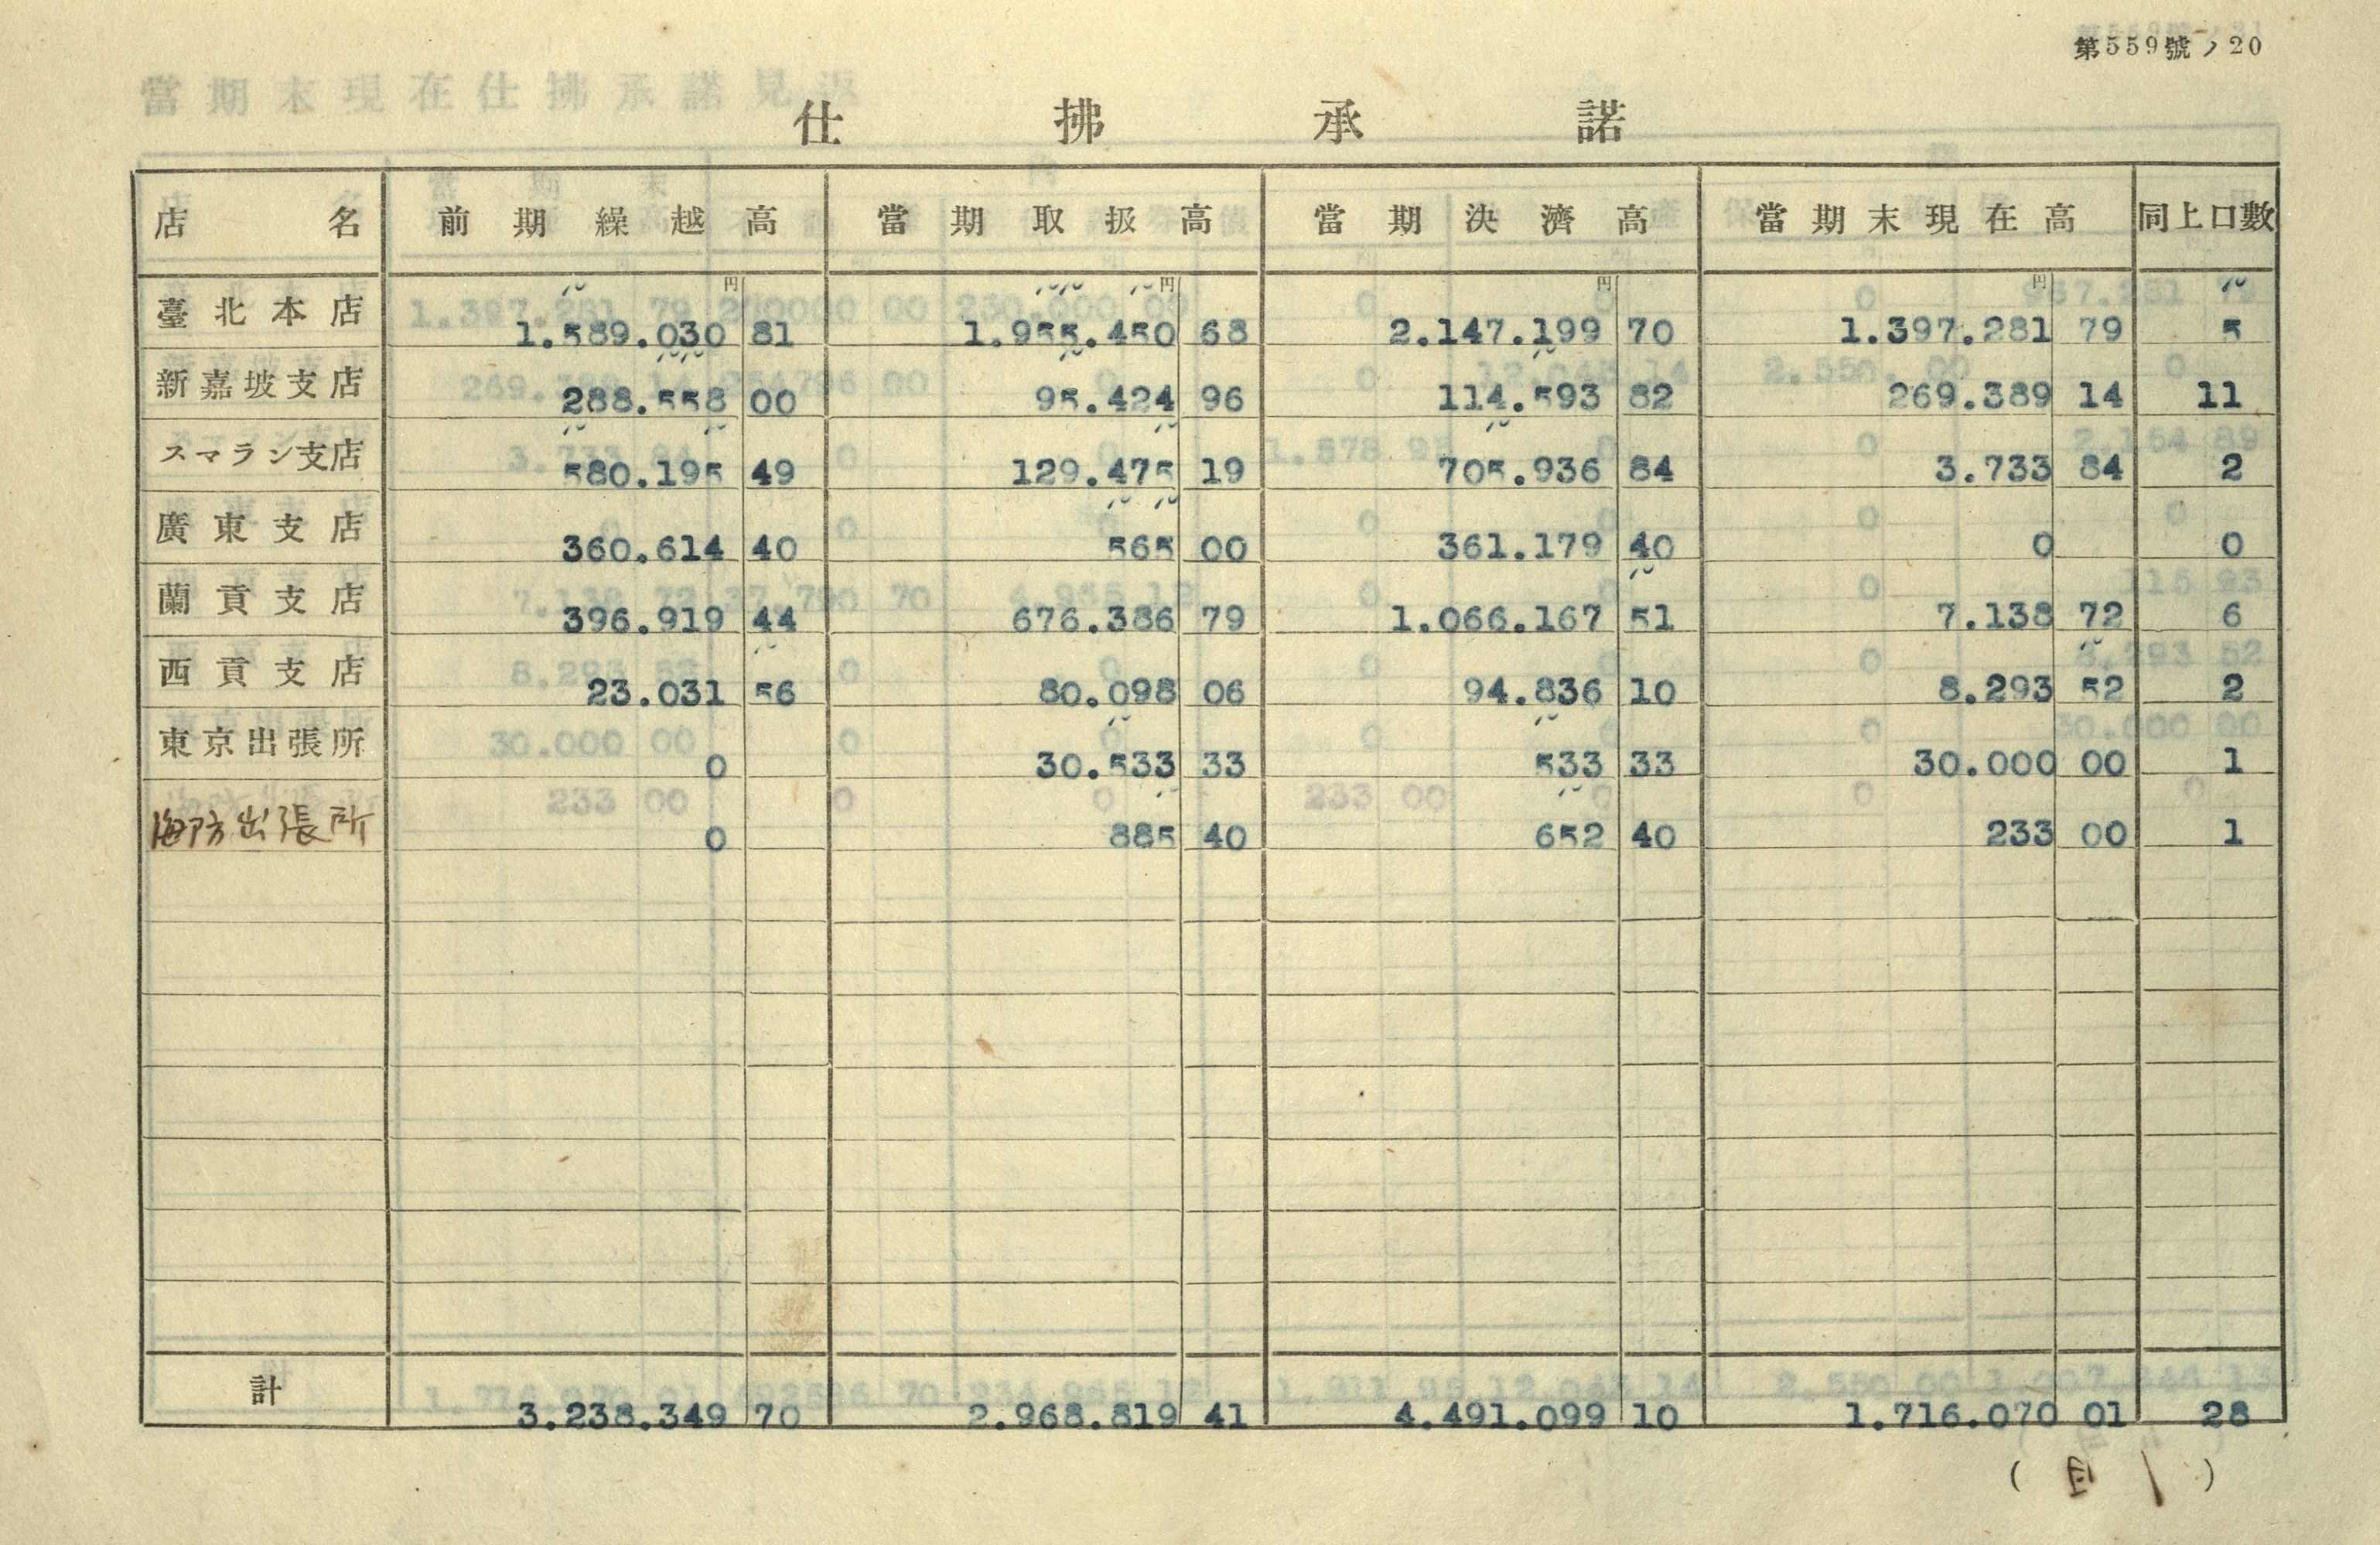 第559號ノ20
仕拂承諾
店名 前期繰越高 當期取扱高 當期決濟高 當期末現在高 同上口數
円 円 円 円
臺北本店 1.589.030 81 1.955.450 68 2.147.199 70 1.397.281 79 5
新嘉坡支店 288.558 00 95.424 96 114.593 82 269.389 14 11
スマラン支店 580.195 49 129.475 19 705.936 84 3.733 84 2
廣東支店 360.614 40 565 00 361.179 40 0 0
蘭貢支店 396.919 44 676.386 79 1.066.167 51 7.138 72 6
西貢支店 23.031 56 80.098 06 94.836 10 8.293 52 2
東京出張所 0 30.533 33 533 33 30.000 00 1
海防出張所 0 885 40 652 40 233 00 1
計 3.238.349 70 2.968.819 41 4.491.099 10 1.716.070 01 28